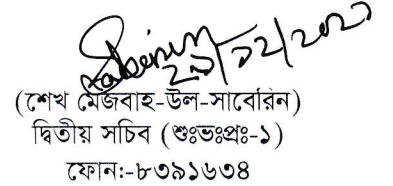 ২৯/১২/২০২১
(শেখ মেজবাহ-উল-সাবেরিন)
দ্বিতীয় সচিব (শুঃভঃপ্রঃ-১)
ফোন:-৮৩৯১৬৩৪